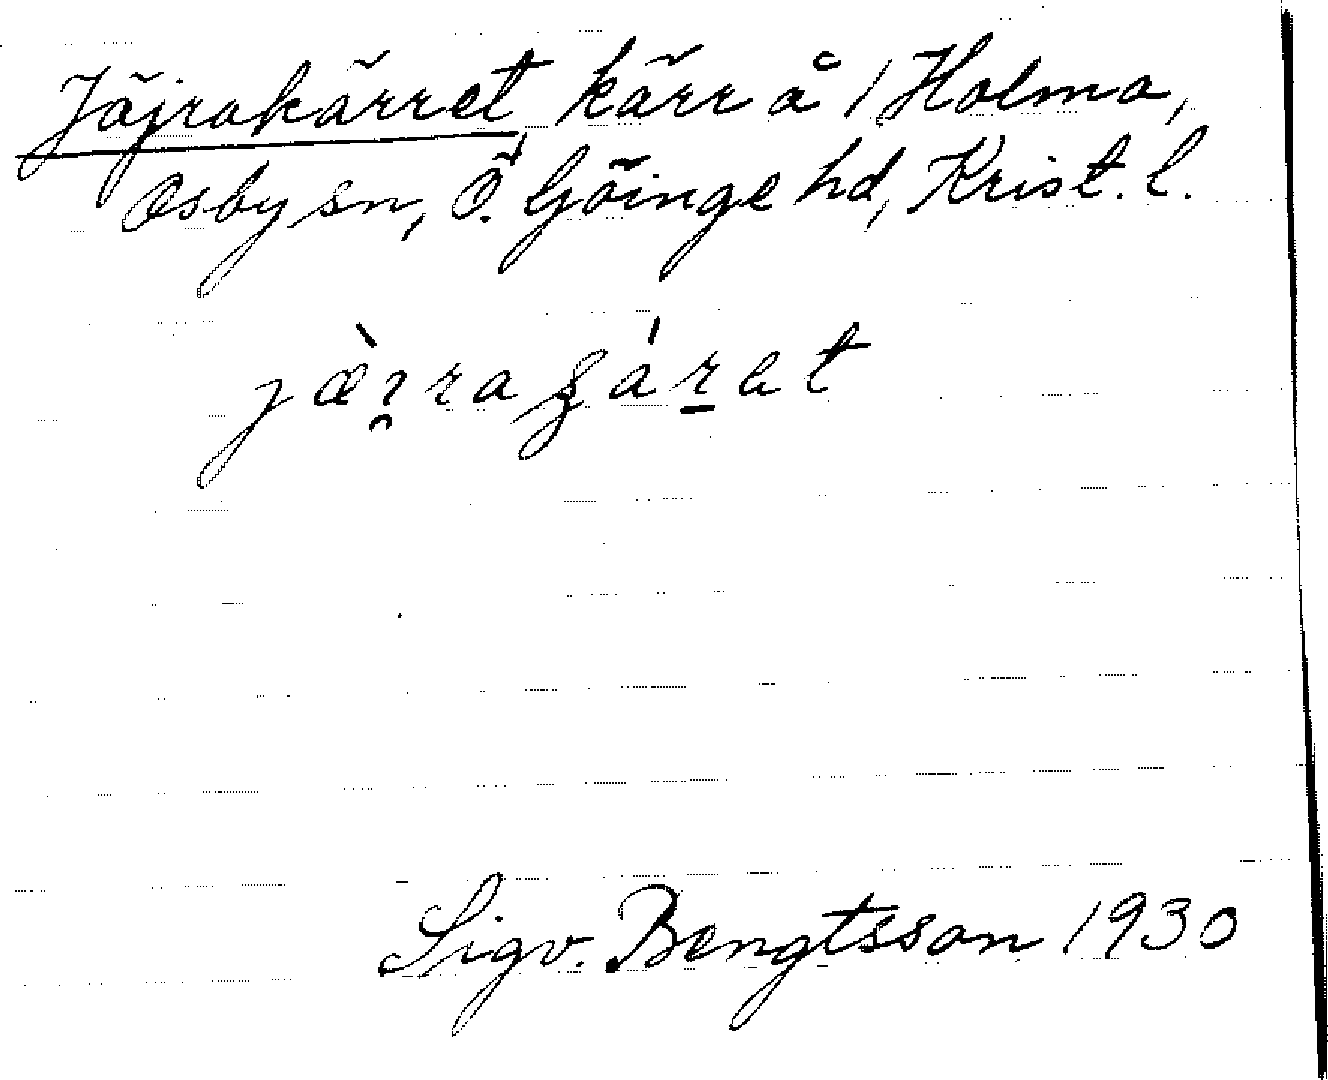 Jäjrakärret, kärr å 1 Holma,
Osby sn, Ö. Göinge hd, Krist. l.
Sigv. Bengtsson 1930